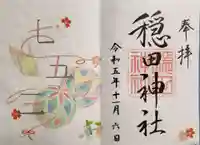 奉拝
穏田神社
令和五年十一月六日
七五三